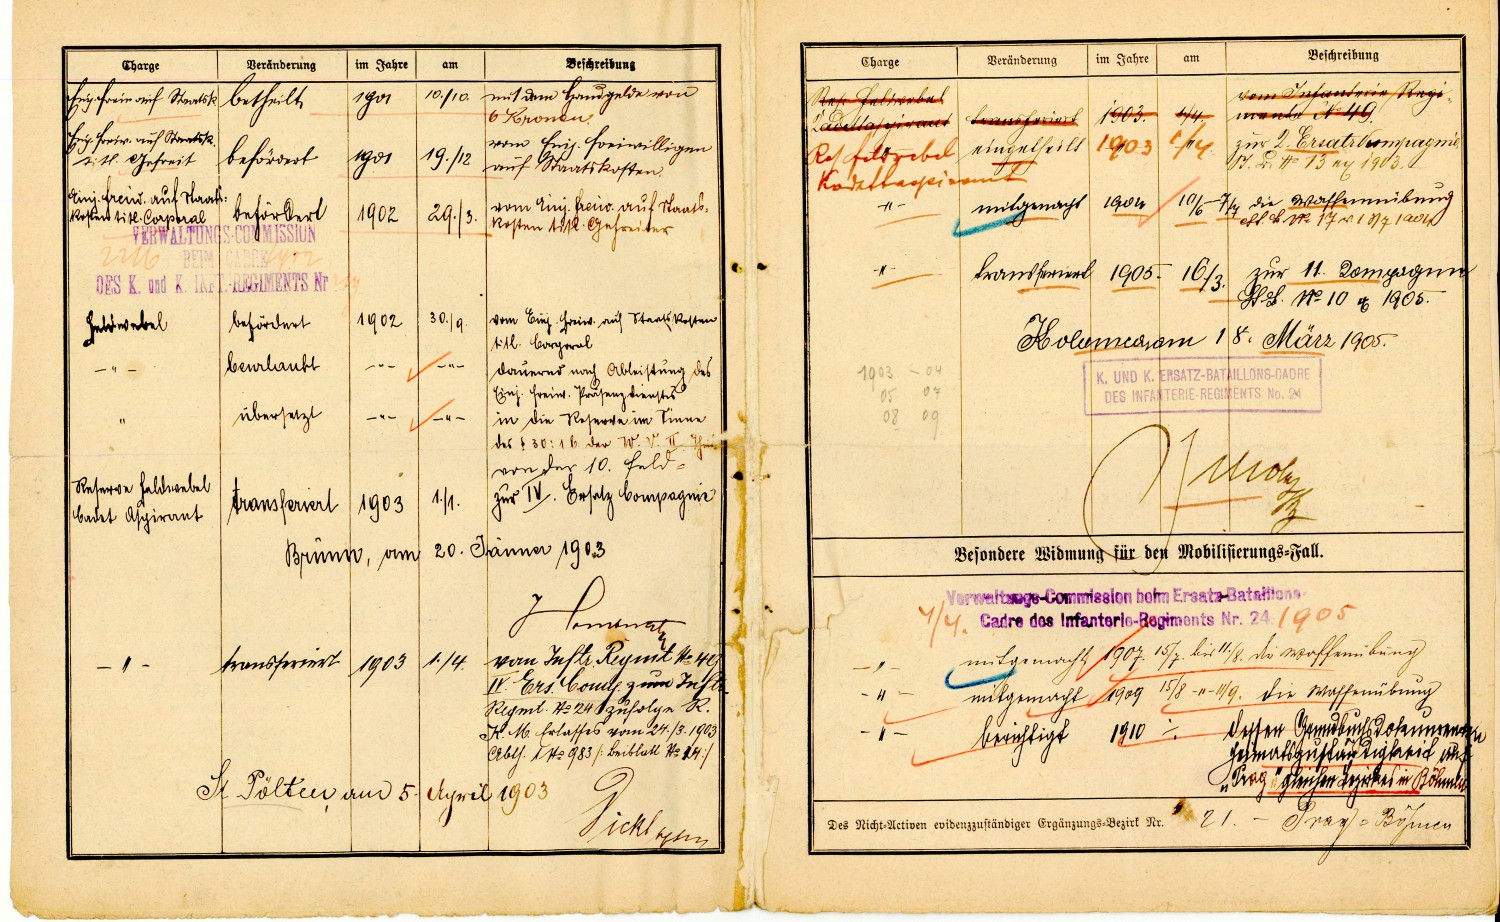 Charge Veränderung im Jahre am Beschreibung
Einj. Freiw. auf Staatsk. betheilt 1901 10./10. mit dem Handgelde von
6 Kronen.
Einj. Freiw. auf Staatsk.
titl. Gefreit. befördert 1901 19./12 vom Einj. Freiwilligen
auf Staatskosten.
Einj. Freiw. auf Staats-
kosten titl. Corporal befördert 1902 29./3. vom Einj. Freiw. auf Staats-
kosten titl. Gefreiter
VERWALTUNGS-COMMISSION
BEIM CADRE
DES K. und K. INFT.-REGIMENTS Nr
Feldwebel befördert 1902 30./9. vom Einj. Freiw. auf Staatskosten
titl. Corporal
- " - beurlaubt - " - - " - dauernd nach Ableistung des
Einj. Freiw. Präsenzdienstes
" übersetzt - " - - " - in die Reserve im Sinne
des § 30:16 der W. V. II. Theil
von der 10. Feld-
Reserve Feldwebel
Cadet Aspirant transferiert 1903 1./1. zur IV. Ersatz Compagnie
Brünn, am 20. Jänner 1903
- " - transferiert 1903 1./4. vom Inftr. Regmt. No 49
IV. Ers. Comp. zum Inftr.
Regmt. No 24 zufolge R.
K. M. Erlasses vom 24./3. 1903
Abth. 1 No 983 /: Beiblatt No 14:/
St Pölten, am 5. April 1903
Charge Veränderung im Jahre am Beschreibung
Res. Feldwebel vom Infanterie Regi-
Cadettaspirant transferiert 1903. 1/4. mente No 49.
Res. Feldwebel eingetheilt 1903 1/4. zur 2. Ersatzkompagnie
Kadettaspirant No 13 ex 1903.
- " - mitgemacht 1904 10/6 - 7/7 die Waffenübung
No 17
- " - transferiert 1905. 16/3. zur 11. Compagnie
No 10 ex 1905.
Kolomea am 18. März 1905.
1903 - 04
05 07
08 09
K. UND K. ERSATZ-BATAILLONS-CADRE
DES INFANTERIE-REGIMENTS No. 24
Besondere Widmung für den Mobilisierungs-Fall.
Verwaltungs-Commission beim Ersatz-Bataillons-
1/4. Cadre des Infanterie-Regiments Nr. 24 1905
- " - mitgemacht 1907. 15/7. bis 11./8. die Waffenübung
- " - mitgemacht 1909 15/8 - " - 11/9. die Waffenübung
- " - berichtigt 1910 dessen Grundbuchsdokumenten
Heimatszuständigkeit auf
„Prag" gleichen Bezirkes in Böhmen
Des Nicht-Activen evidenzzuständiger Ergänzungs-Bezirk Nr. 21. - Prag - Böhmen